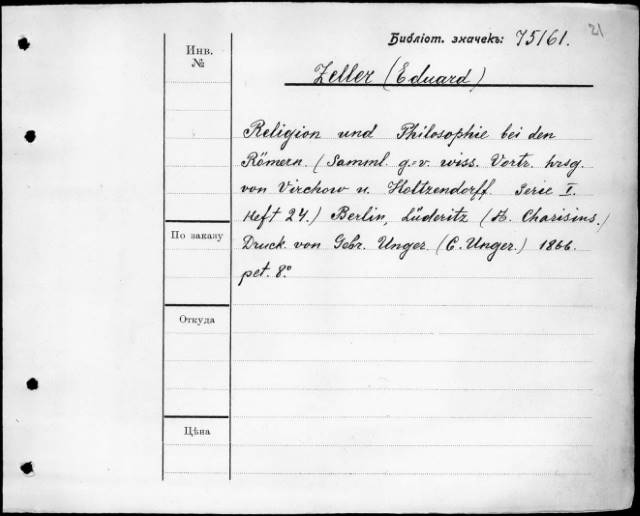 21
Библіот. значекъ: 75161.
Инв.
№
Zeller (Eduard)
Religion und Philosophie bei den
Römern. (Samml. g.-v. wiss. Vortr. hrsg.
von Virchow u. Holtzendorff. Serie I.
Heft 24.) Berlin, Lüderitz (A. Charisius.)
По заказу
Druck von Gebr. Unger. (C. Unger.) 1866.
pet. 8.º
Откуда
Цѣна